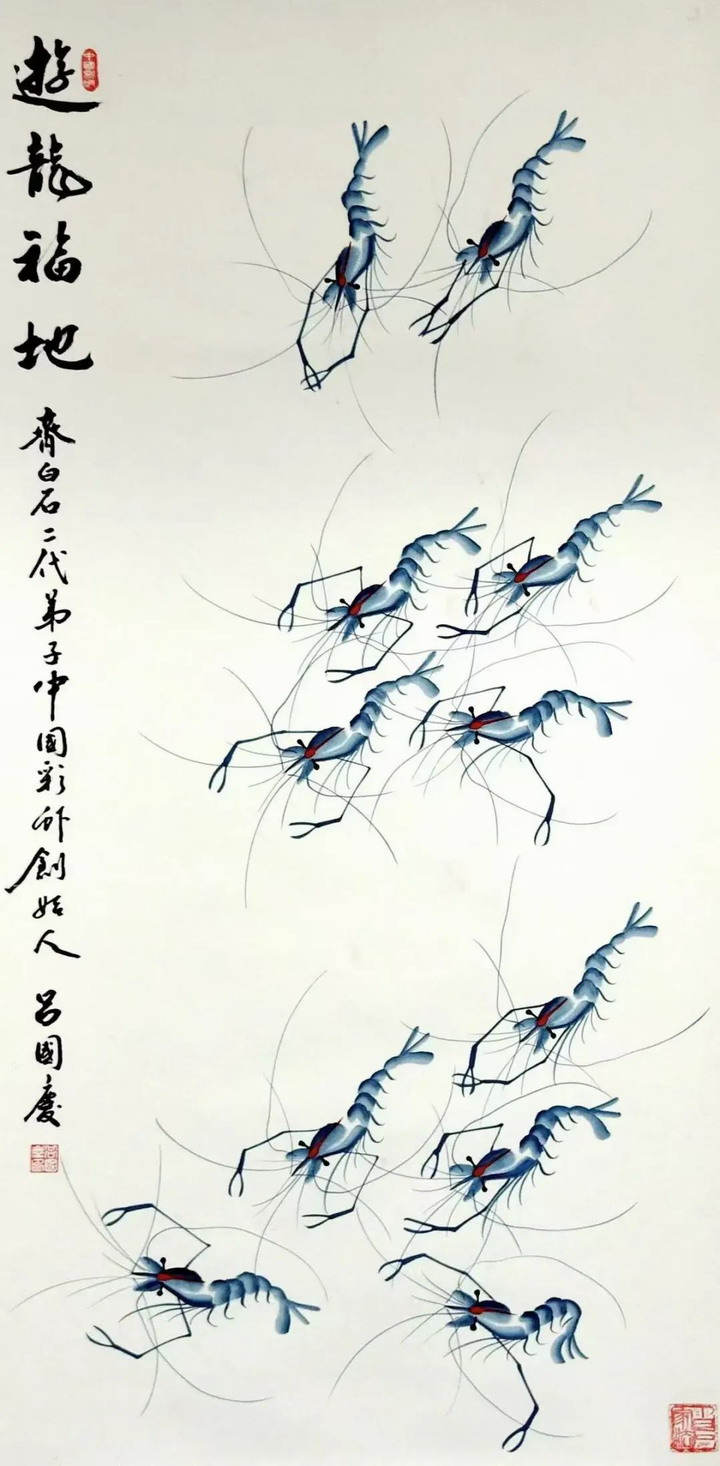 遊龍福地
齊白石二代弟子中國彩虾創始人
吕國慶